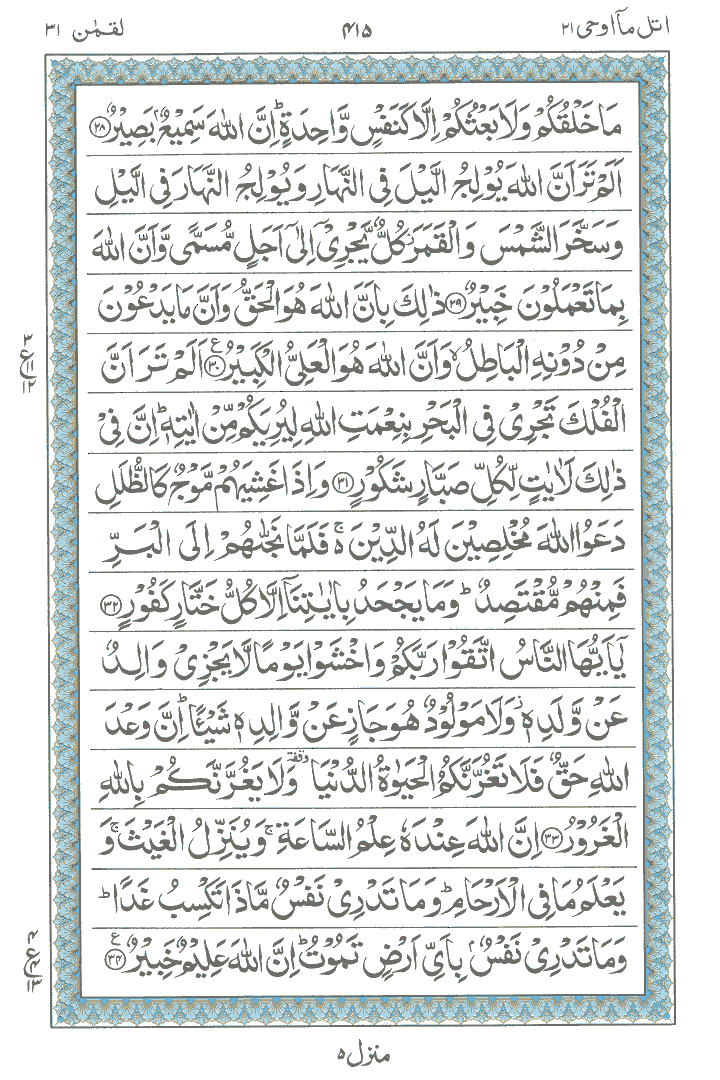 اتل مآ اوحی ۲۱ ۴۱۵ لقمٰن ۳۱
مَا خَلْقُكُمْ وَلَا بَعْثُكُمْ اِلَّا كَنَفْسٍ وَّاحِدَةٍ ؕ اِنَّ اللّٰهَ سَمِيْعٌۢ بَصِيْرٌ ۝۲۸
اَلَمْ تَرَ اَنَّ اللّٰهَ يُوْلِجُ الَّيْلَ فِى النَّهَارِ وَيُوْلِجُ النَّهَارَ فِى الَّيْلِ
وَسَخَّرَ الشَّمْسَ وَالْقَمَرَ ؗ كُلٌّ يَّجْرِىْۤ اِلٰٓى اَجَلٍ مُّسَمًّى وَّاَنَّ اللّٰهَ
بِمَا تَعْمَلُوْنَ خَبِيْرٌ ۝۲۹ ذٰلِكَ بِاَنَّ اللّٰهَ هُوَ الْحَقُّ وَاَنَّ مَا يَدْعُوْنَ
مِنْ دُوْنِهِ الْبَاطِلُ ۙ وَاَنَّ اللّٰهَ هُوَ الْعَلِىُّ الْكَبِيْرُ ۝۳۰ ع اَلَمْ تَرَ اَنَّ
۳ ع ۱۱ ۱۲
الْفُلْكَ تَجْرِىْ فِى الْبَحْرِ بِنِعْمَتِ اللّٰهِ لِيُرِيَكُمْ مِّنْ اٰيٰتِهٖ ؕ اِنَّ فِىْ
ذٰلِكَ لَاٰيٰتٍ لِّكُلِّ صَبَّارٍ شَكُوْرٍ ۝۳۱ وَاِذَا غَشِيَهُمْ مَّوْجٌ كَالظُّلَلِ
دَعَوُا اللّٰهَ مُخْلِصِيْنَ لَهُ الدِّيْنَ ۬ۚ فَلَمَّا نَجّٰىهُمْ اِلَى الْبَرِّ
فَمِنْهُمْ مُّقْتَصِدٌ ؕ وَمَا يَجْحَدُ بِاٰيٰتِنَاۤ اِلَّا كُلُّ خَتَّارٍ كَفُوْرٍ ۝۳۲
يٰۤاَيُّهَا النَّاسُ اتَّقُوْا رَبَّكُمْ وَاخْشَوْا يَوْمًا لَّا يَجْزِىْ وَالِدٌ
عَنْ وَّلَدِهٖ ؗ وَلَا مَوْلُوْدٌ هُوَ جَازٍ عَنْ وَّالِدِهٖ شَيْـًٔا ؕ اِنَّ وَعْدَ
اللّٰهِ حَقٌّ فَلَا تَغُرَّنَّكُمُ الْحَيٰوةُ الدُّنْيَا وقفة وَلَا يَغُرَّنَّكُمْ بِاللّٰهِ
الْغَرُوْرُ ۝۳۳ اِنَّ اللّٰهَ عِنْدَهٗ عِلْمُ السَّاعَةِ ۚ وَيُنَزِّلُ الْغَيْثَ ۚ وَ
يَعْلَمُ مَا فِى الْاَرْحَامِ ؕ وَمَا تَدْرِىْ نَفْسٌ مَّاذَا تَكْسِبُ غَدًا ؕ
وَمَا تَدْرِىْ نَفْسٌۢ بِاَىِّ اَرْضٍ تَمُوْتُ ؕ اِنَّ اللّٰهَ عَلِيْمٌ خَبِيْرٌ ۝۳۴ ع
۴ ع ۴ ۱۳
منزل ۵